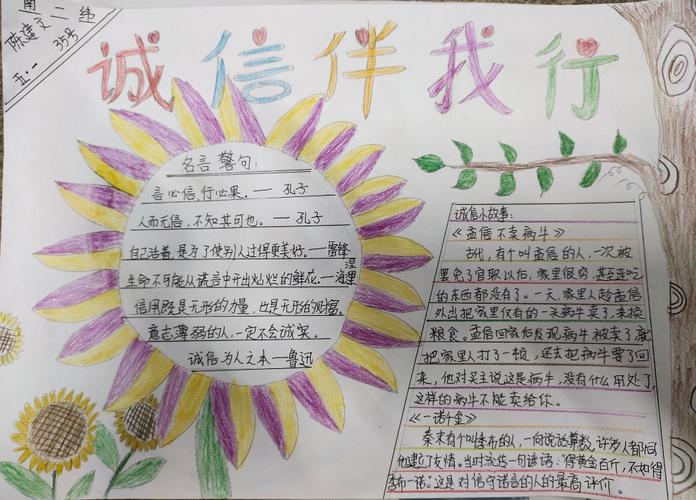 南二纬
陈建文 35号
五.一
诚信伴我行
名言警句:
言必信,行必果。— 孔子
人而无信,不知其可也。— 孔子
自己活着,是为了使别人过得更美好。—雷锋
生命不可能从谎言中开出灿烂的鲜花。—海涅
信用既是无形的力量,也是无形的财富。
意志薄弱的人,一定不会诚实。
诚信为人之本—鲁迅
诚信小故事:
《孟信不卖病牛》
古代,有个叫孟信的人,一次被
罢免了官职以后,家里很穷,甚至连吃
的东西都没有了。一天,家里人趁孟信
外出把家里仅有的一头病牛卖了,来换
粮食。孟信回家后发现病牛被卖了就
把家里人打了一顿,还去把病牛要了回
来,他对买主说这是病牛,没有什么用处了,
这样的病牛不能卖给你。
《一诺千金》
秦末有个叫季布的人,一向说话算数,许多人都同
他建起了友情。当时流传一句谚语:“得黄金百斤,不如得
季布一诺。”这是对信守诺言的人的最高评价。